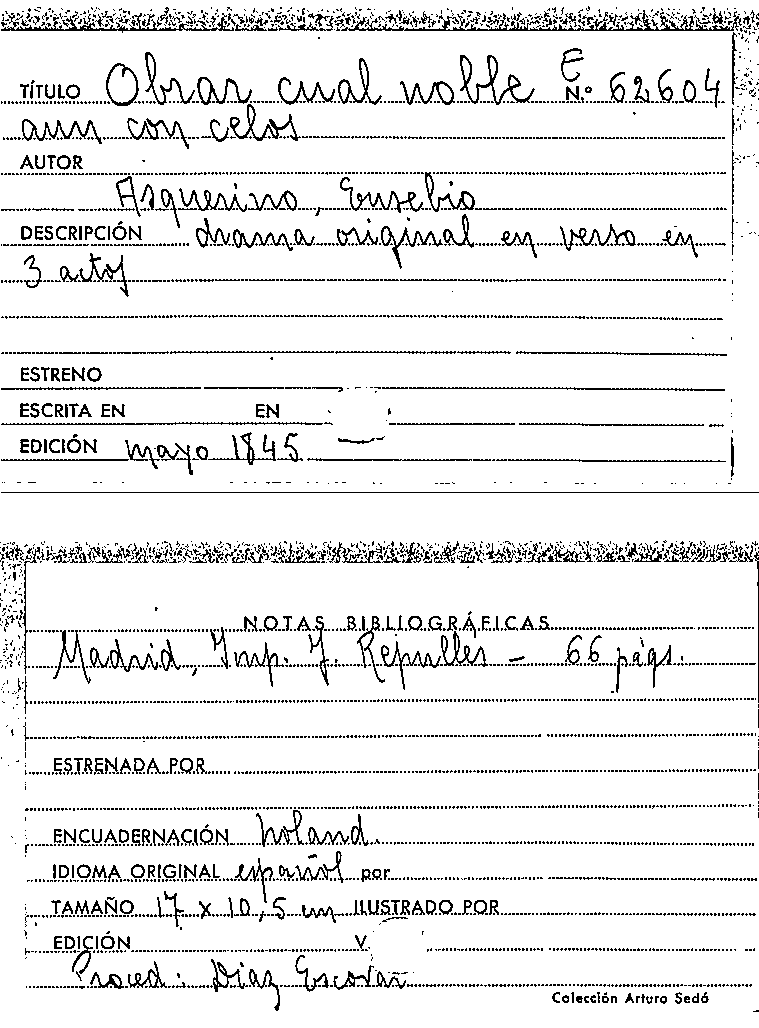 E
TÍTULO Obrar cual noble N.º 62604
aun con celos
AUTOR
Asquerino, Eusebio
DESCRIPCIÓN drama original en verso en
3 actos
ESTRENO
ESCRITA EN EN
EDICIÓN mayo 1845
NOTAS BIBLIOGRÁFICAS
Madrid, Imp. J. Repullés - 66 págs.
ESTRENADA POR
ENCUADERNACIÓN holand.
IDIOMA ORIGINAL español por
TAMAÑO 17 x 10,5 cm ILUSTRADO POR
EDICIÓN V.
Proced: Diaz Escovar
Colección Arturo Sedó